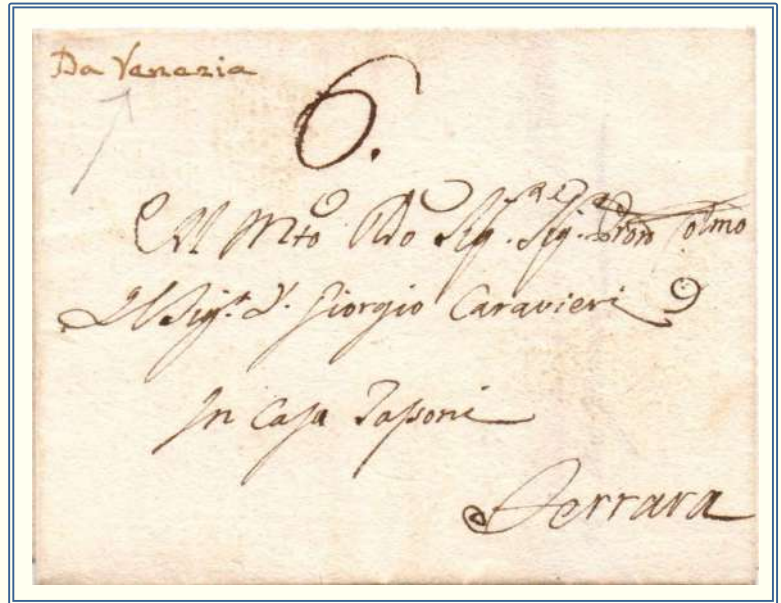 Da Venezia
6.
All Mto Rdo Sig.re Sig. Pron Colmo
Il Sig.r D. Giorgio Caravieri
In Casa Tassoni
Ferrara